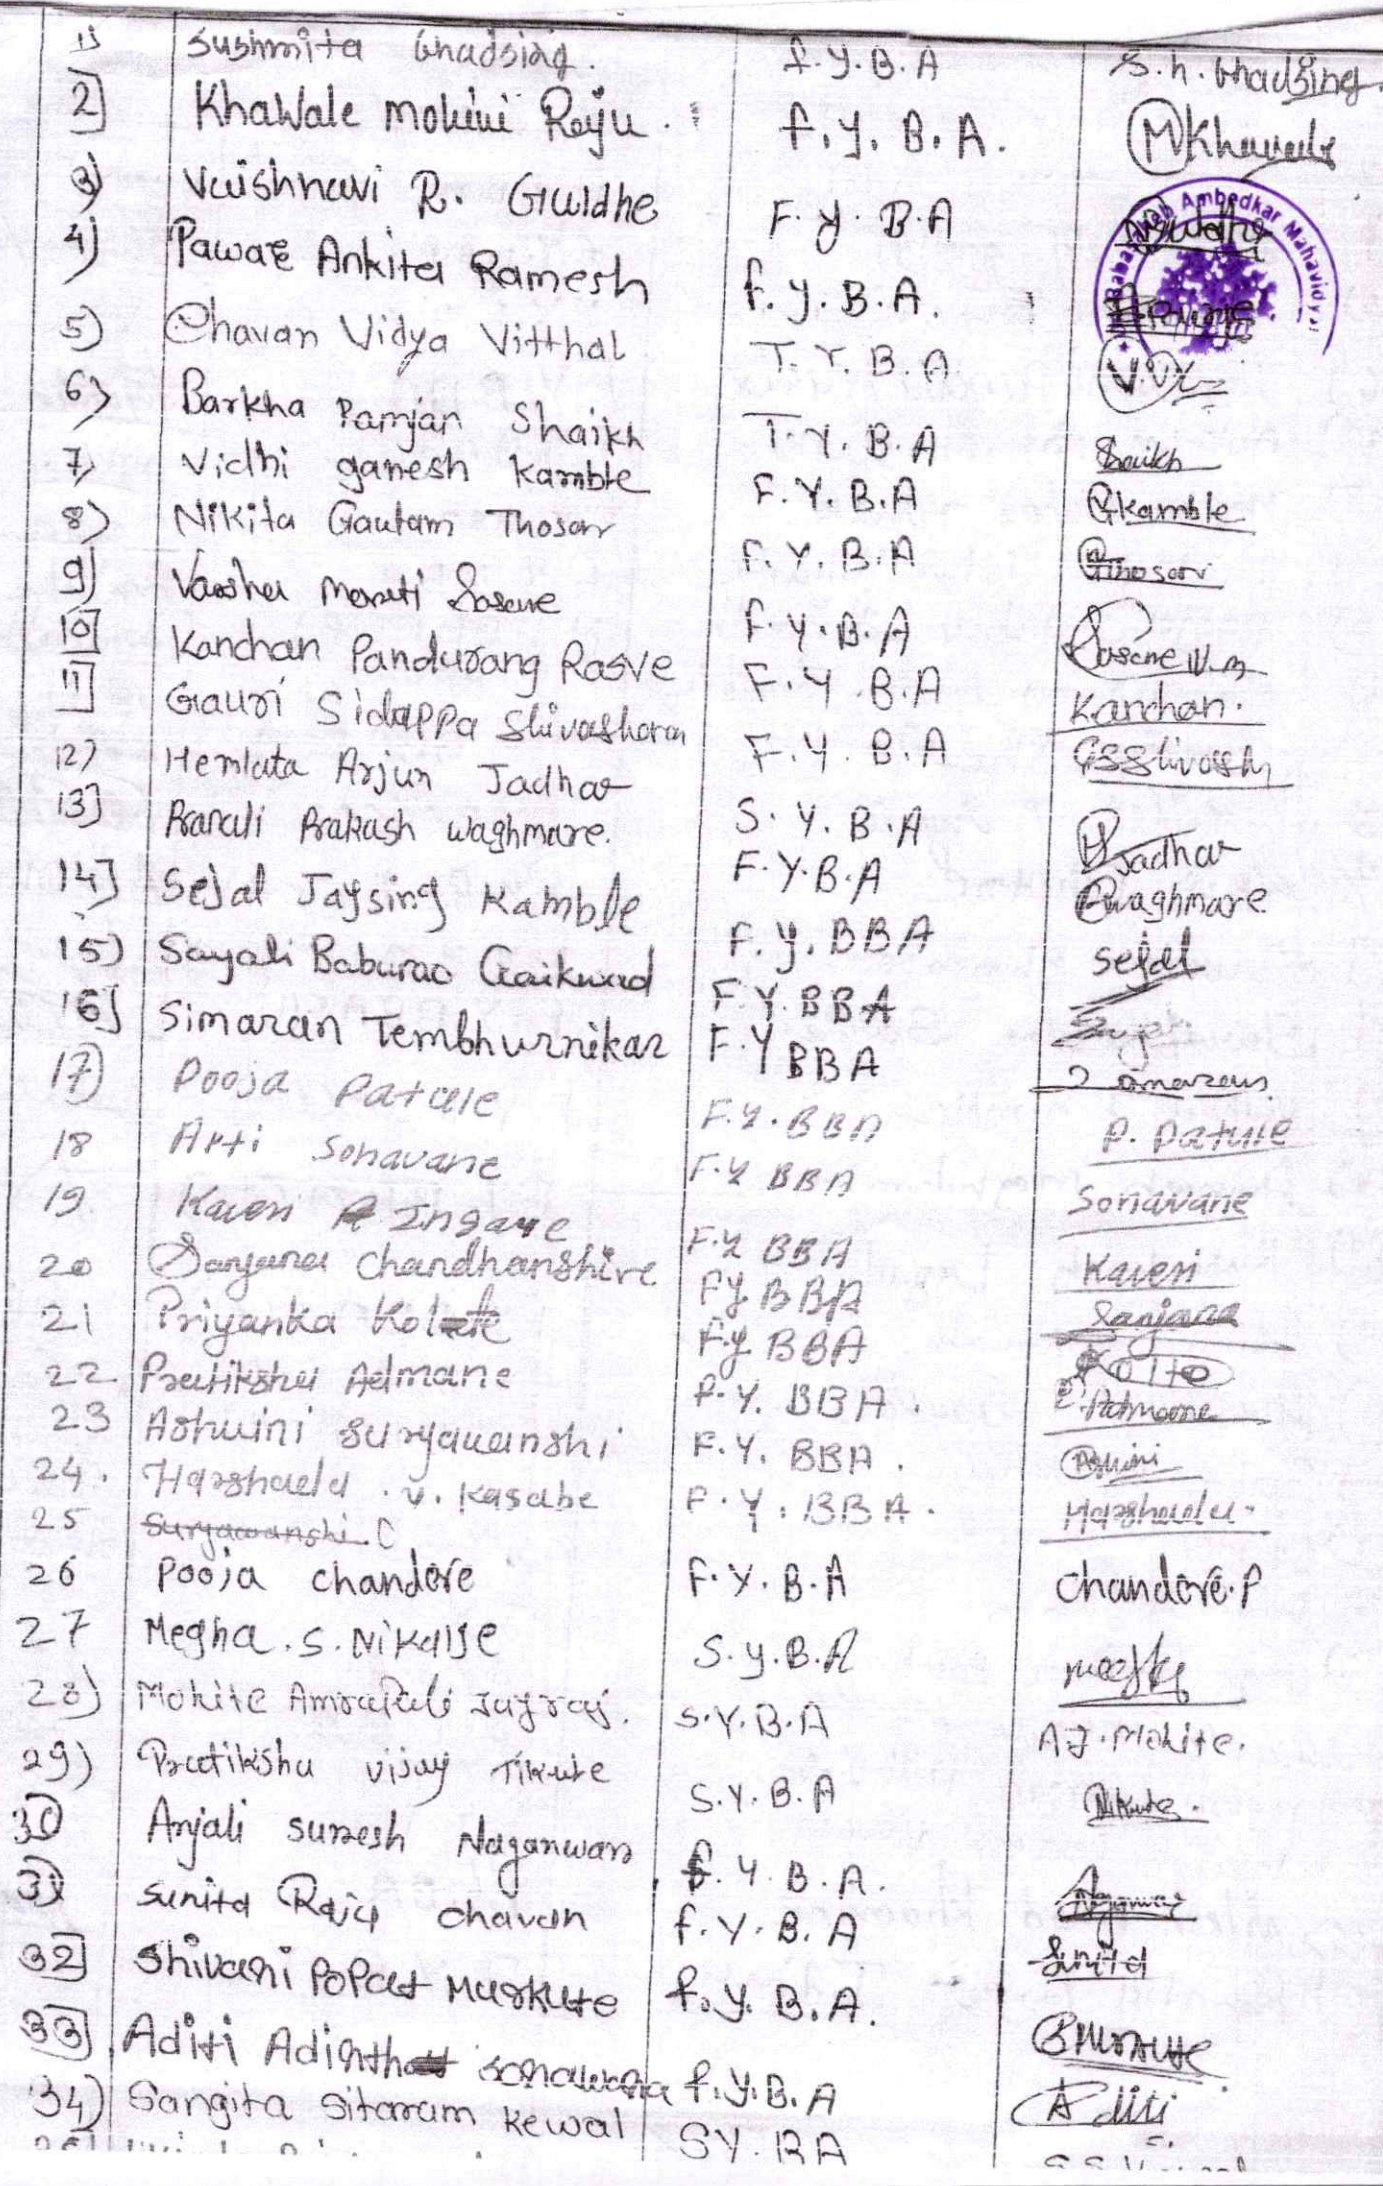 1) Sushmita Ghadsing. F.Y.B.A S.h. Ghadsing.
2] Khawale Mohini Raju. F.Y.B.A. M Khawale
3) Vaishnavi R. Guldhe F.Y.B.A Guldhe
4) Pawar Ankita Ramesh F.Y.B.A.
Babasaheb Ambedkar Mahavidya
5) Chavan Vidya Vitthal T.Y.B.A. V.V.
6) Barkha Ramjan Shaikh T.Y.B.A Shaikh
7) Vidhi ganesh Kamble F.Y.B.A Gkamble
8) Nikita Gautam Thosar F.Y.B.A Thosar
9] Varsha Maruti Sasane F.Y.B.A Sasane V.M
10] Kanchan Pandurang Rasve F.Y.B.A Kanchan.
11] Gauri Sidappa Shivasharan F.Y.B.A
12) Hemlata Arjun Jadhav S.Y.B.A H Jadhav
13] Pranali Prakash Waghmare. F.Y.B.A Pwaghmare
14] Sejal Jaysing Kamble F.Y.BBA Sejal
15) Sayali Baburao Gaikwad F.Y.BBA
16] Simaran Tembhurnikar F.Y BBA
17) Pooja Patule F.Y.BBA P. Patule
18 Arti Sonavane F.Y BBA Sonavane
19. Kaveri Ingave F.Y BBA Kaveri
20 Sanjana Chandhanshive FY BBA Sanjana
21 Priyanka Kolte F.Y BBA Kolte
22. Pratiksha Admane F.Y. BBA. P. Admane
23 Ashwini Suryawanshi F.Y. BBA. Ashwini
24. Harshada. V. Kasabe F.Y. BBA. Harshada.
25 Suryawanshi. C
26 Pooja Chandore F.Y.B.A Chandore.P
27 Megha.S.Nikalje S.Y.B.A
28) Mohite Amrapali Jayraj. S.Y.B.A A.J.Mohite.
29) Pratiksha Vijay Tikute S.Y.B.A Tikute.
30) Anjali Suresh Naganwar F.Y.B.A.
31) Sunita Raju Chavan F.Y.B.A Sunita
32] Shivani Popat Murkute F.Y.B.A. SMurkute
33] Aditi Adinth Sonawane F.Y.B.A Aditi
34) Sangita Sitaram Kewal SY.BA